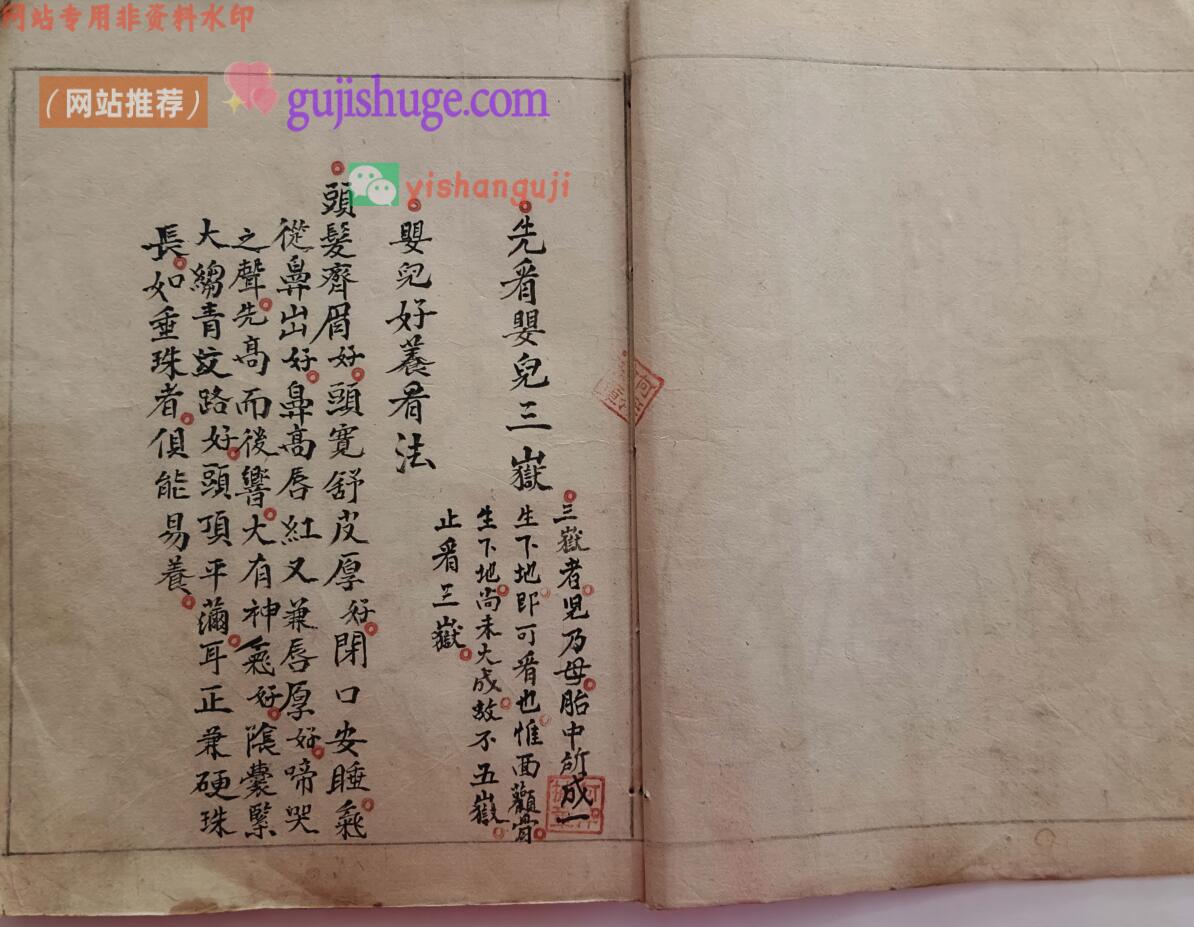 网站专用非资料水印
（网站推荐）
gujishuge.com
yishanguji
先看嬰兒三嶽
三嶽者児乃母胎中所成一
生下地即可看也惟面顴骨
生下地尚未大成故不五嶽
止看三嶽
嬰兒好養看法
頭髮齊眉好頭寬舒皮厚好閉口安睡氣
從鼻出好鼻高唇紅又兼唇厚好啼哭
之聲先高而後響大有神氣好陰囊緊
大縐青紋路好頭頂平滿耳正兼硬珠
長如垂珠者俱能易養